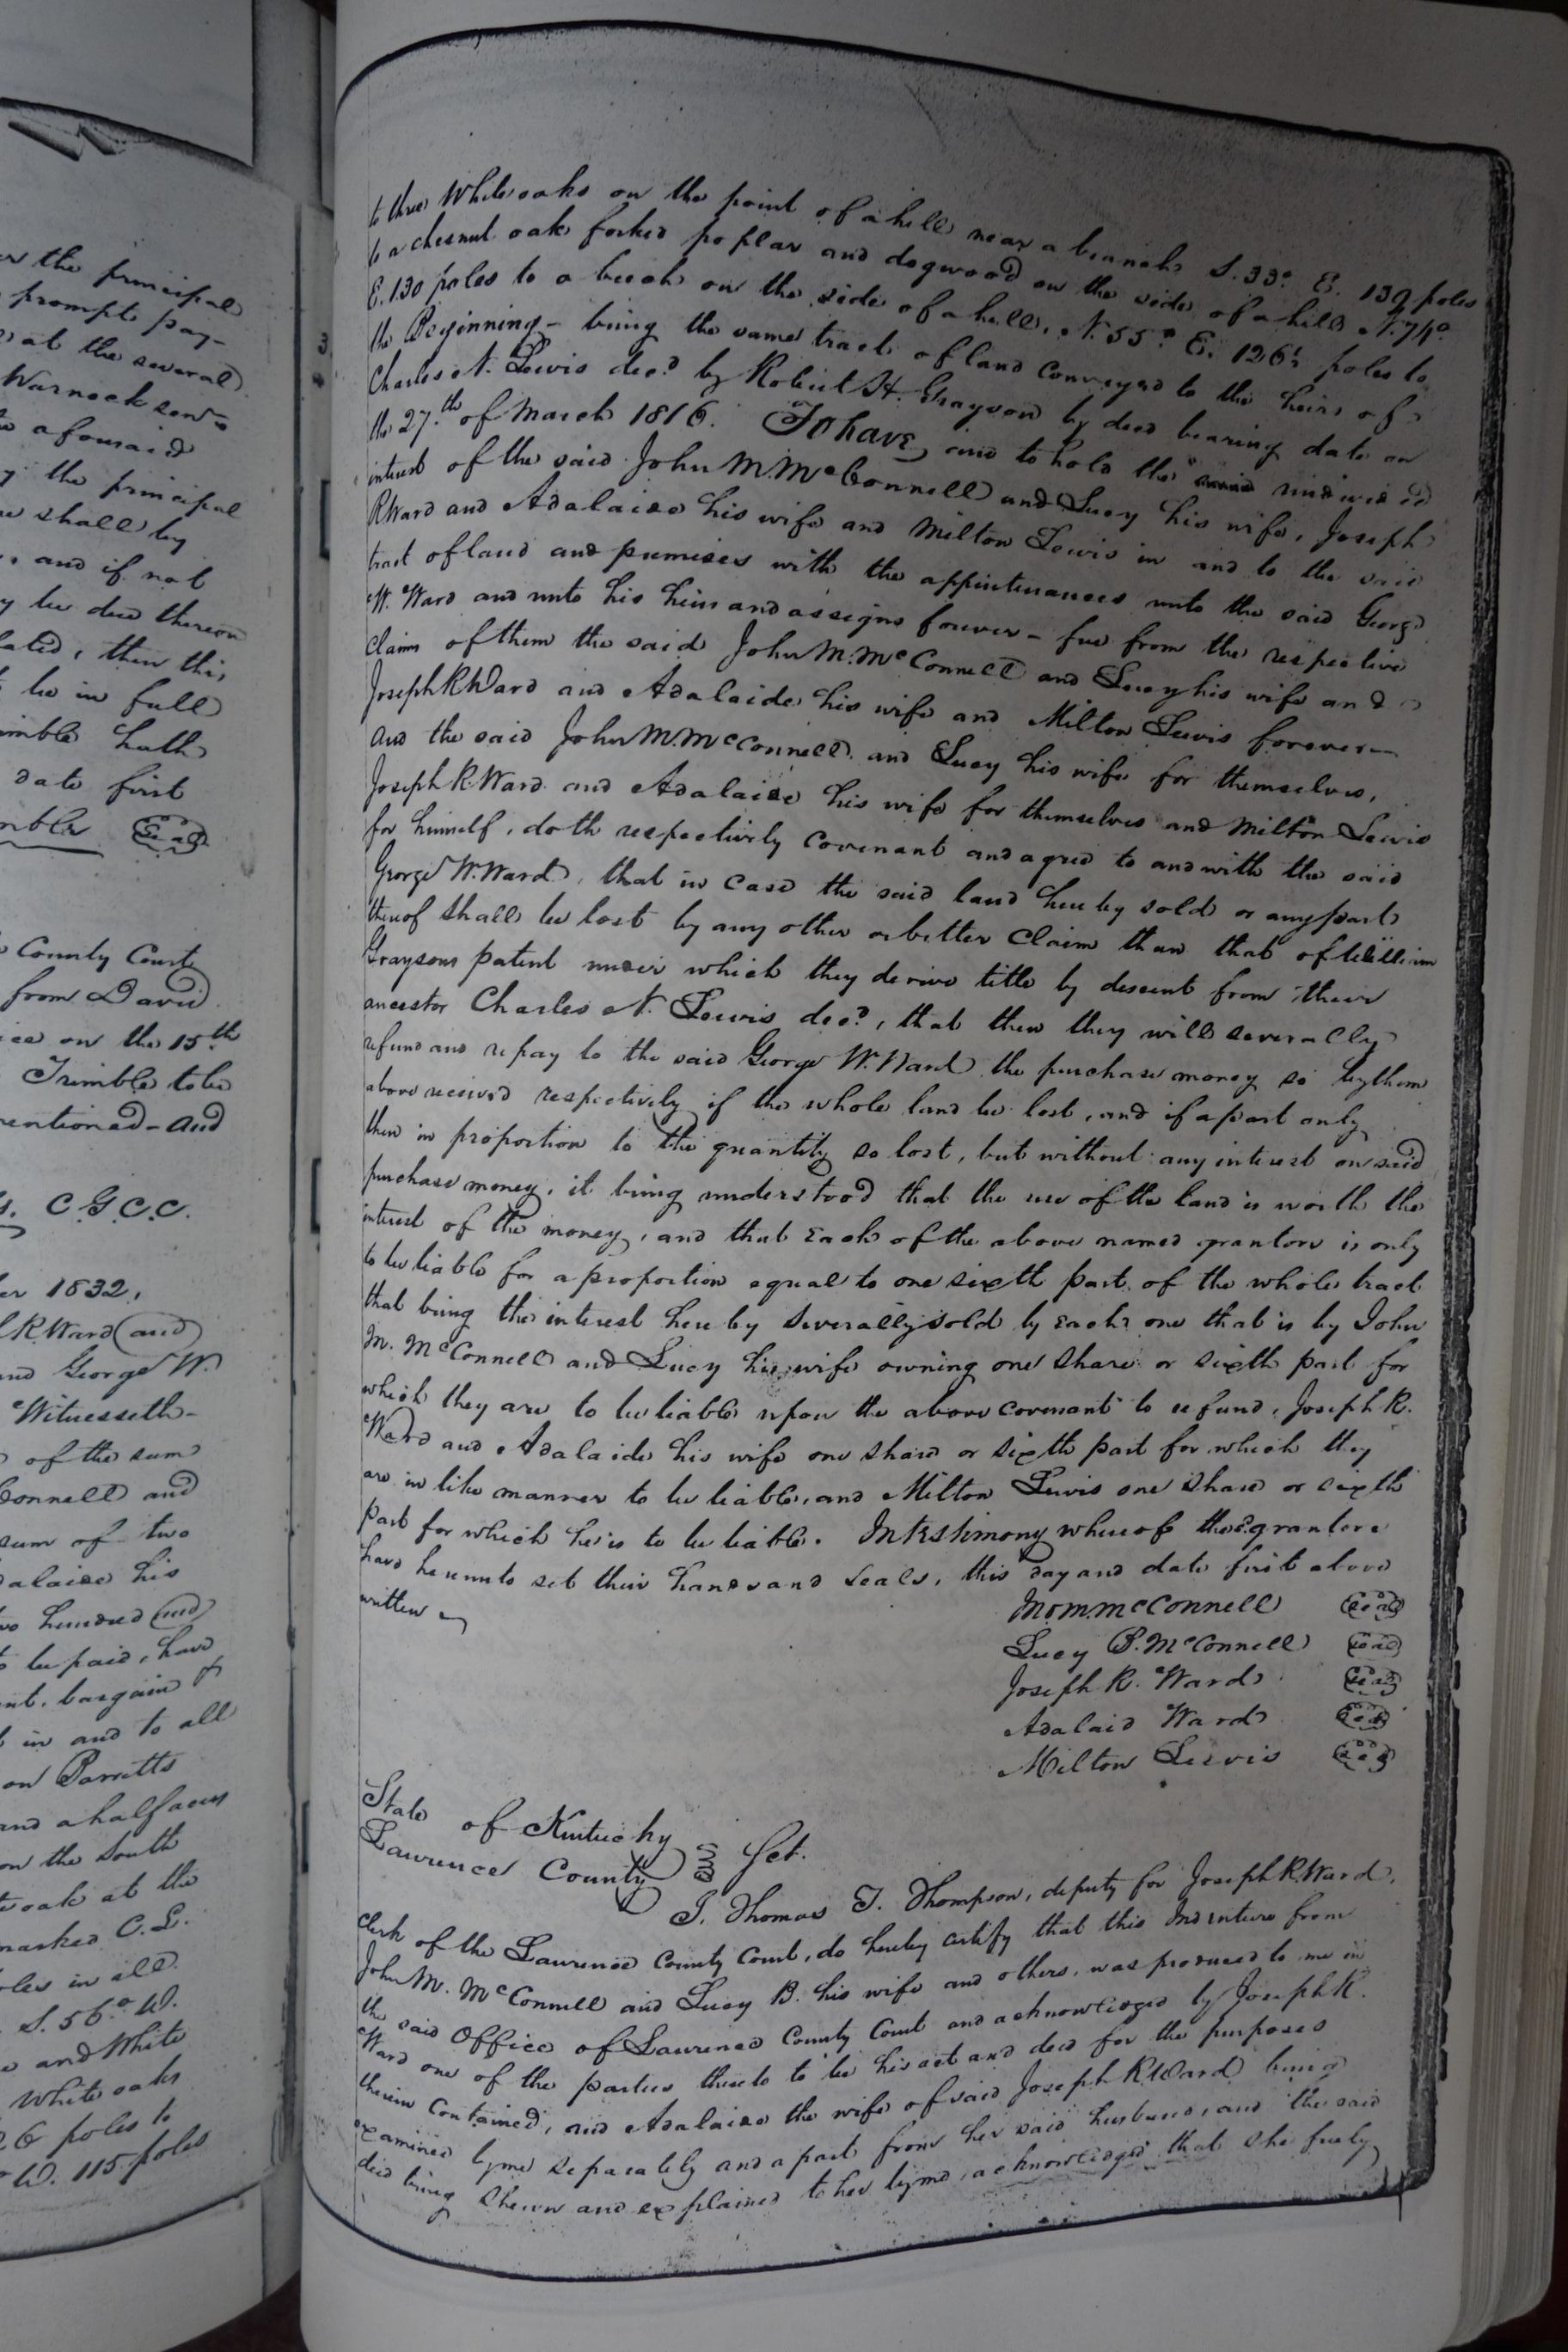 er the principal
prompt pay-
at the several
Warnock
aforesaid
the principal
shall by
, and if not
be due thereon
, then this
be in full
hath
date first
Seal
County Court
from David
on the 15th
Trimble to be
mentioned - and
C.G.C.C.
1832,
R Ward and
and George W.
Witnesseth-
of the sum
Connell and
sum of two
Adalaide his
two hundred and
to be paid, have
bargain &
in and to all
on Barretts
and a half acres
on the South
oak at the
marked C.L.
poles in all.
S. 56° W.
and White
White oaks
26 poles to
W. 115 poles
to three White oaks on the point of a hill near a branch S. 33° E. 139 poles
to a chesnut oak forked poplar and dogwood on the side of a hill N. 74°
E. 130 poles to a beech on the side of a hill, N. 55° E. 126½ poles to
the Beginning - being the same tract of land conveyed to the heirs of
Charles N. Lewis decd by Robert H. Grayson by deed bearing date on
the 27th of March 1816. To have and to hold the undivided
interest of the said John M. McConnell and Lucy his wife, Joseph
R Ward and Adalaide his wife and Milton Lewis in and to the said
tract of land and premises with the appurtenances unto the said George
W. Ward and unto his heirs and assigns forever - free from the respective
claims of them the said John M. McConnell and Lucy his wife and
Joseph R Ward and Adalaide his wife and Milton Lewis forever -
And the said John M. McConnell and Lucy his wife for themselves,
Joseph R. Ward and Adalaide his wife for themselves and Milton Lewis
for himself, doth respectively covenant and agree to and with the said
George W. Ward, that in case the said land hereby sold or any part
thereof shall be lost by any other or better claim than that of William
Graysons patent under which they derive title by descent from their
ancestor Charles N. Lewis decd, that then they will severally
refund and repay to the said George W. Ward the purchase money so by them
above received respectively if the whole land be lost, and if a part only
then in proportion to the quantity so lost, but without any interest on said
purchase money, it being understood that the use of the land is worth the
interest of the money, and that Each of the above named grantors is only
to be liable for a proportion equal to one sixth part of the whole tract
that being the interest hereby severally sold by Each one that is by John
M. McConnell and Lucy his wife owning one share or sixth part for
which they are to be liable upon the above covenant to refund, Joseph R.
Ward and Adalaide his wife one share or sixth part for which they
are in like manner to be liable, and Milton Lewis one share or sixth
part for which he is to be liable. In testimony whereof the sd grantors
have hereunto set their hands and seals, this day and date first above
written
Jno M. McConnell Seal
Lucy B. McConnell Seal
Joseph R. Ward Seal
Adalaid Ward Seal
Milton Lewis Seal
State of Kentucky
Lawrence County Sct.
I, Thomas T. Thompson, deputy for Joseph R. Ward,
Clerk of the Lawrence County Court, do hereby certify that this Indenture from
John M. McConnell and Lucy B. his wife and others, was produced to me in
the said Office of Lawrence County Court and acknowledged by Joseph R.
Ward one of the parties thereto to be his act and deed for the purposes
therein contained, and Adalaide the wife of said Joseph R Ward being
examined by me separately and apart from her said husband, and the said
deed being shewn and explained to her by me, acknowledged that she freely